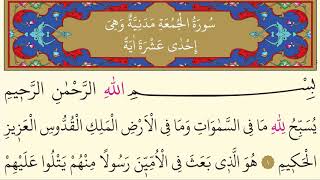 سُورَةُ الْجُمُعَةِ مَدَنِيَّةٌ وَهِيَ
اِحْدٰى عَشْرَةَ اٰيَةً
بِسْمِ اللهِ الرَّحْمٰنِ الرَّحِيمِ
يُسَبِّحُ لِلهِ مَا فِي السَّمٰوَاتِ وَمَا فِي الْاَرْضِ الْمَلِكِ الْقُدُّوسِ الْعَزِيزِ
الْحَكِيمِ ١ هُوَ الَّذِى بَعَثَ فِي الْاُمِّيّٖنَ رَسُولًا مِنْهُمْ يَتْلُوا عَلَيْهِمْ